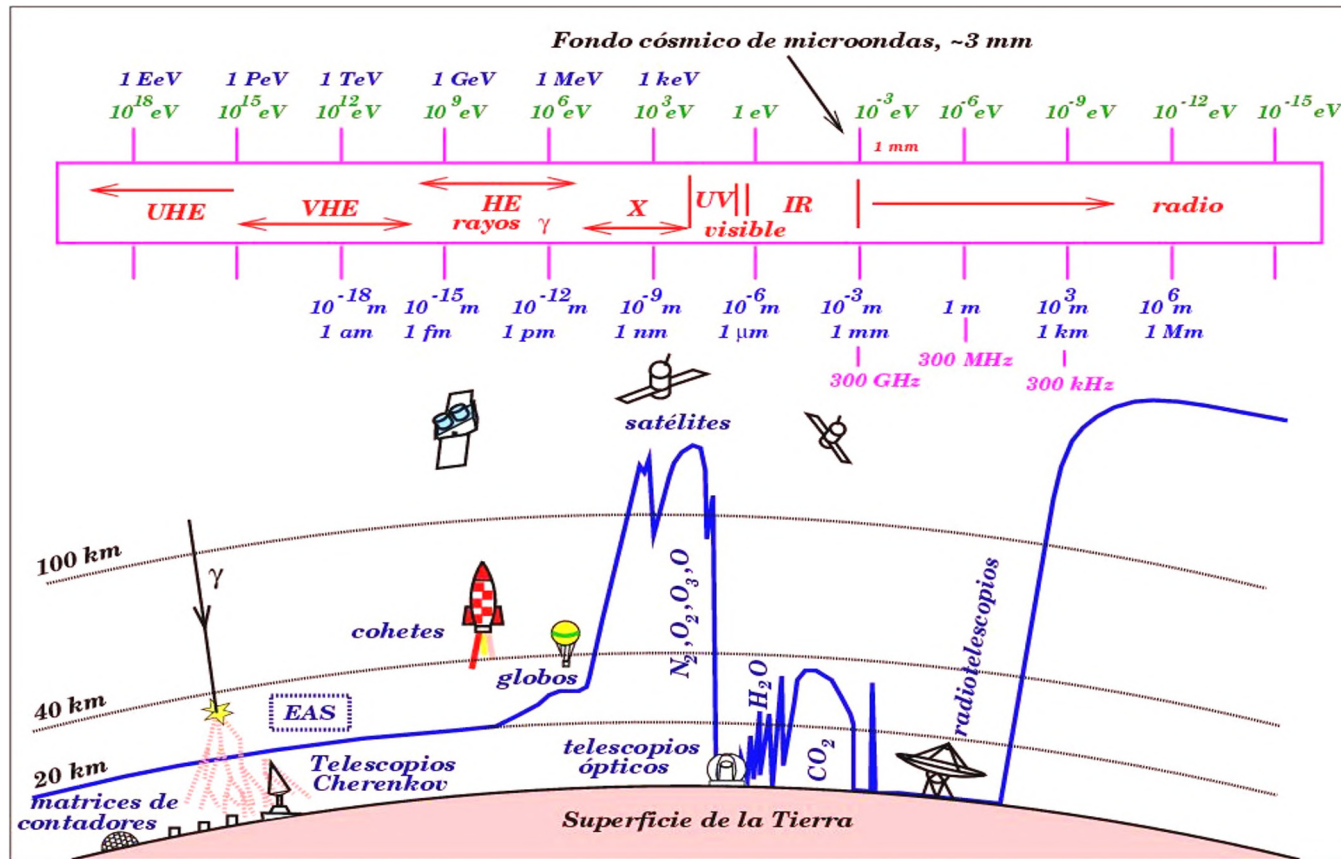 Fondo cósmico de microondas, ~3 mm
1 EeV 1 PeV 1 TeV 1 GeV 1 MeV 1 keV
10^18 eV 10^15 eV 10^12 eV 10^9 eV 10^6 eV 10^3 eV 1 eV 10^-3 eV 10^-6 eV 10^-9 eV 10^-12 eV 10^-15 eV
1 mm
UHE VHE HE X UV IR radio
rayos γ visible
10^-18 m 10^-15 m 10^-12 m 10^-9 m 10^-6 m 10^-3 m 1 m 10^3 m 10^6 m
1 am 1 fm 1 pm 1 nm 1 μm 1 mm 1 km 1 Mm
300 GHz 300 MHz 300 kHz
satélites
100 km
γ
cohetes
globos
N2, O2, O3, O
radiotelescopios
40 km
EAS
H2O
CO2
20 km
Telescopios
Cherenkov
telescopios
ópticos
matrices de
contadores
Superficie de la Tierra